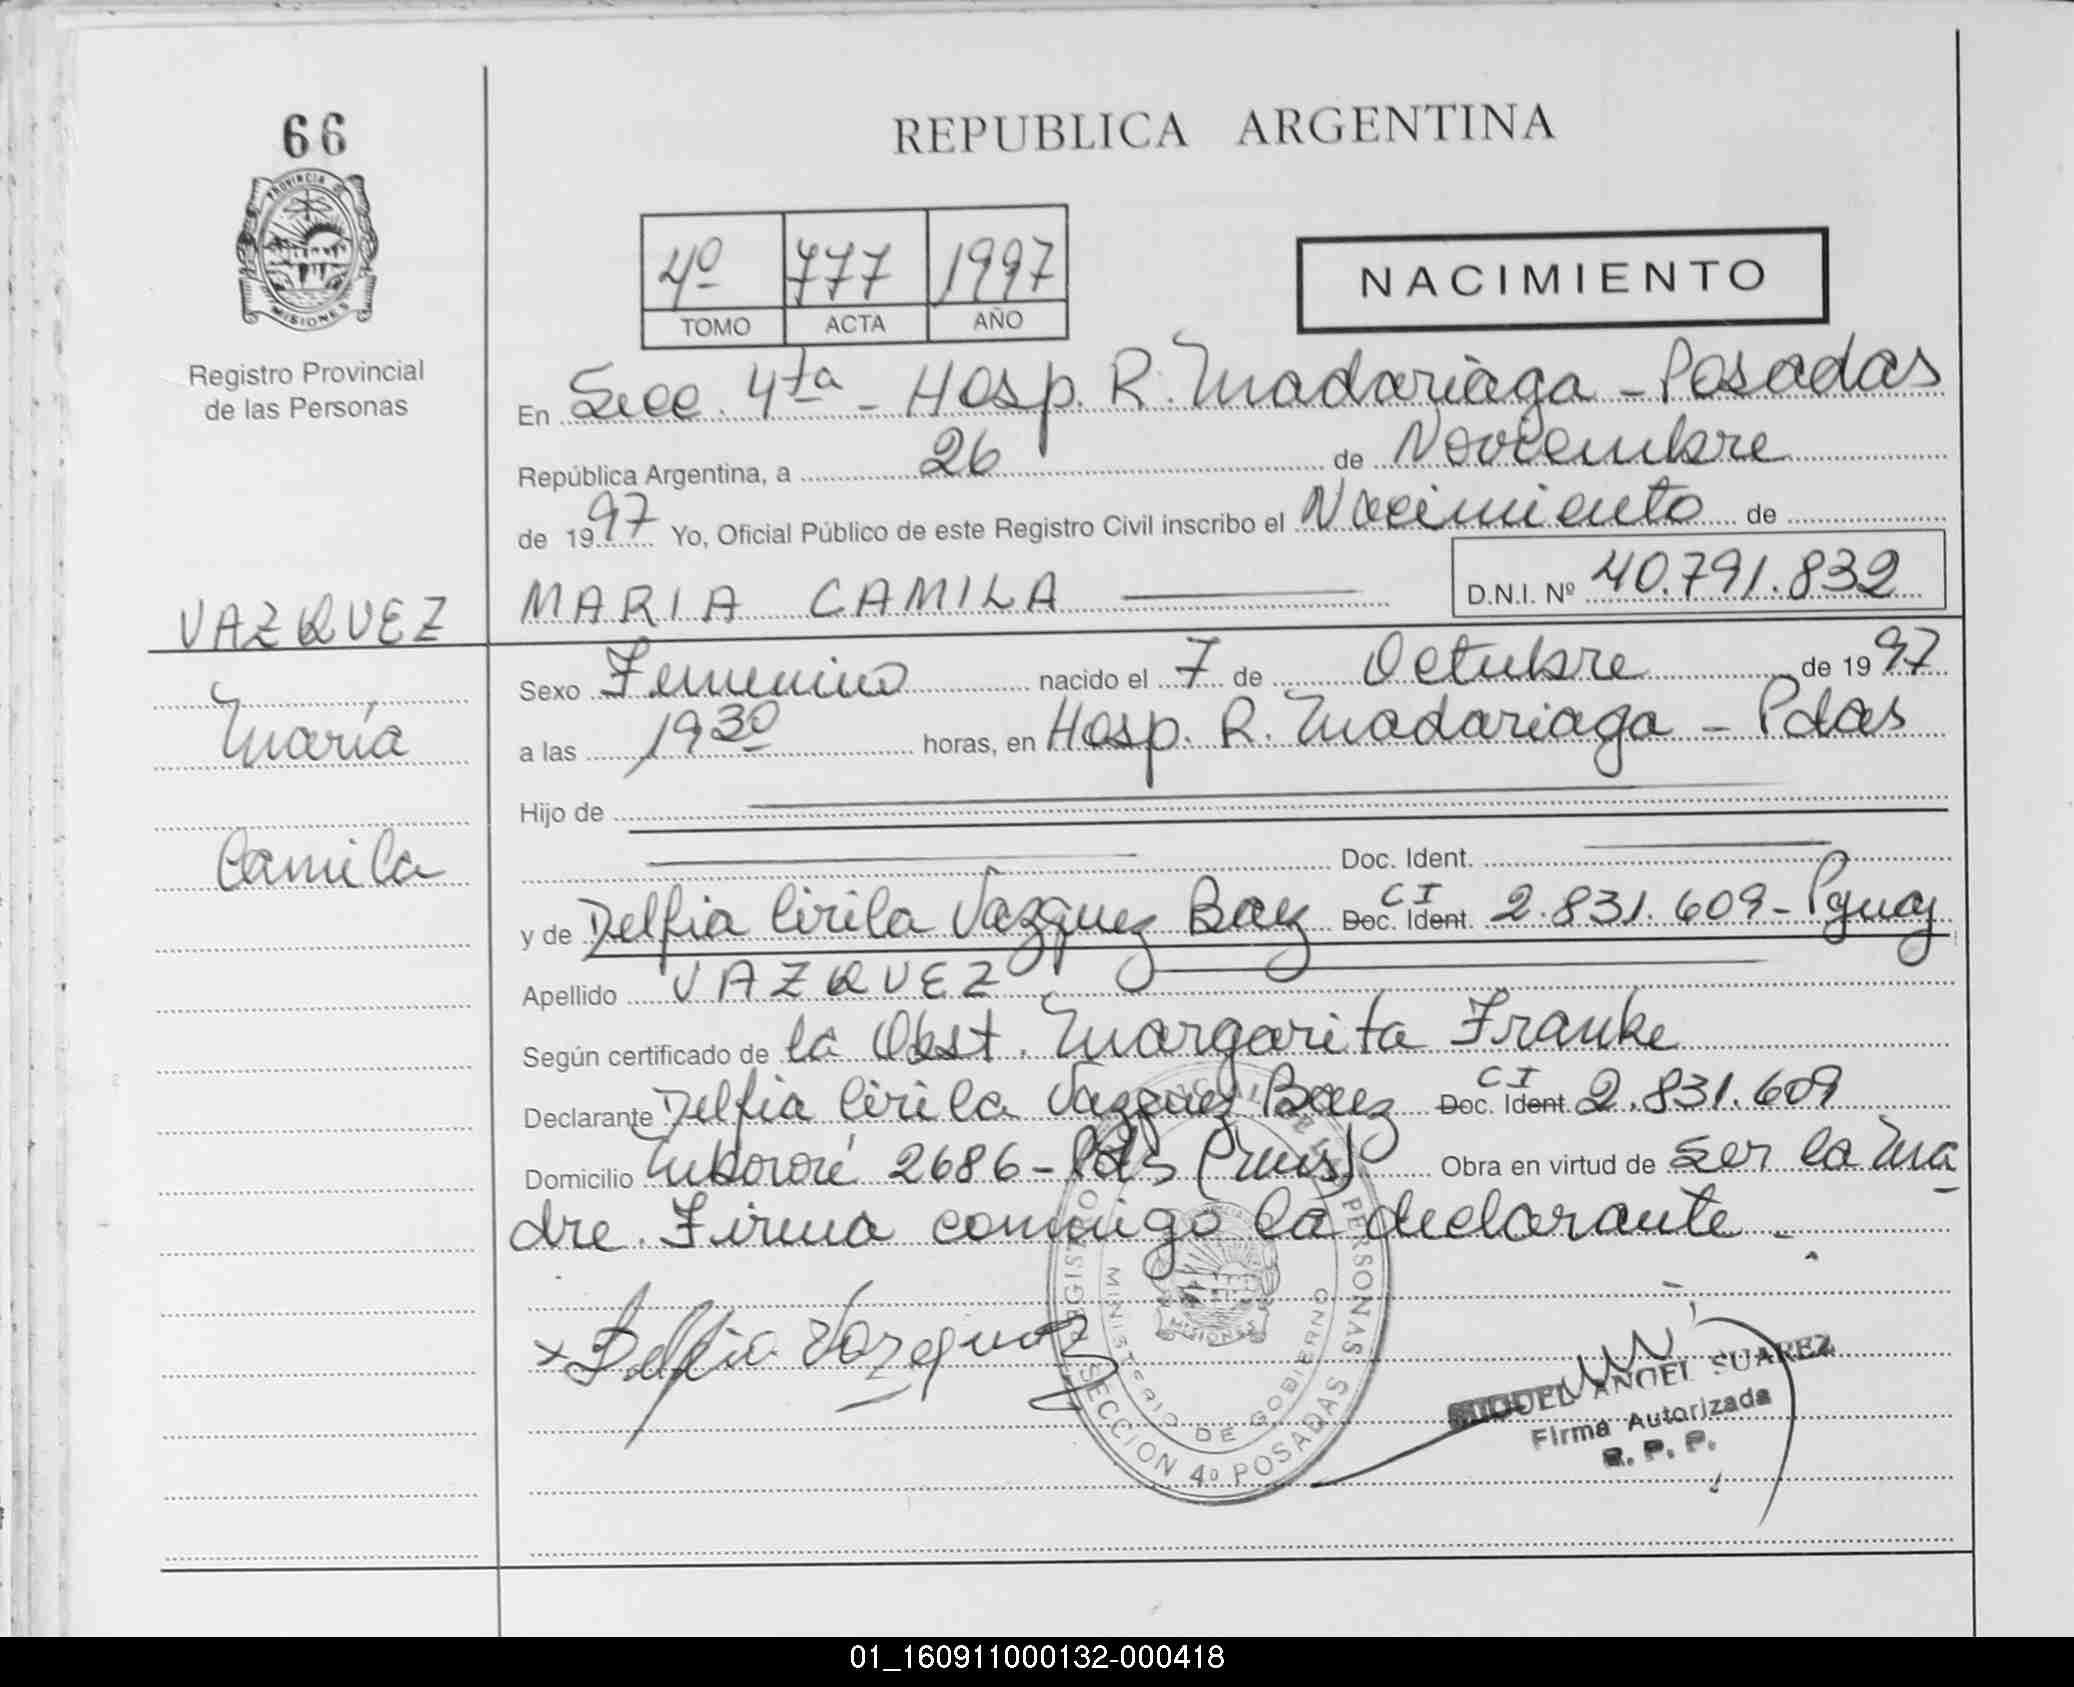 66
PROVINCIA DE
MISIONES
Registro Provincial
de las Personas
VAZQUEZ
María
Camila
REPUBLICA ARGENTINA
4º 777 1997
TOMO ACTA AÑO
NACIMIENTO
En Secc. 4ta - Hosp. R. Madariaga - Posadas
República Argentina, a 26 de Noviembre
de 1997 Yo, Oficial Público de este Registro Civil inscribo el Nacimiento de
MARIA CAMILA D.N.I. Nº 40.791.832
Sexo Femenino nacido el 7 de Octubre de 1997
a las 19 30 horas, en Hosp. R. Madariaga - Pdas
Hijo de
Doc. Ident.
y de Delfia Cirila Vazquez Baez Doc. Ident. CI 2.831.609 - Pguay
Apellido VAZQUEZ
Según certificado de la Obst. Margarita Franke
Declarante Delfia Cirila Vazquez Baez Doc. Ident. CI 2.831.609
Domicilio Tubororé 2686 - Pds (mis) Obra en virtud de ser la ma
dre. Firma conmigo la declarante -.
x Delfia Vazquez
REGISTRO PERSONAS
MINISTERIO DE GOBIERNO
MISIONES
SECCION 4º POSADAS
MIGUEL ANGEL SUAREZ
Firma Autorizada
R. P. P.
01_160911000132-000418